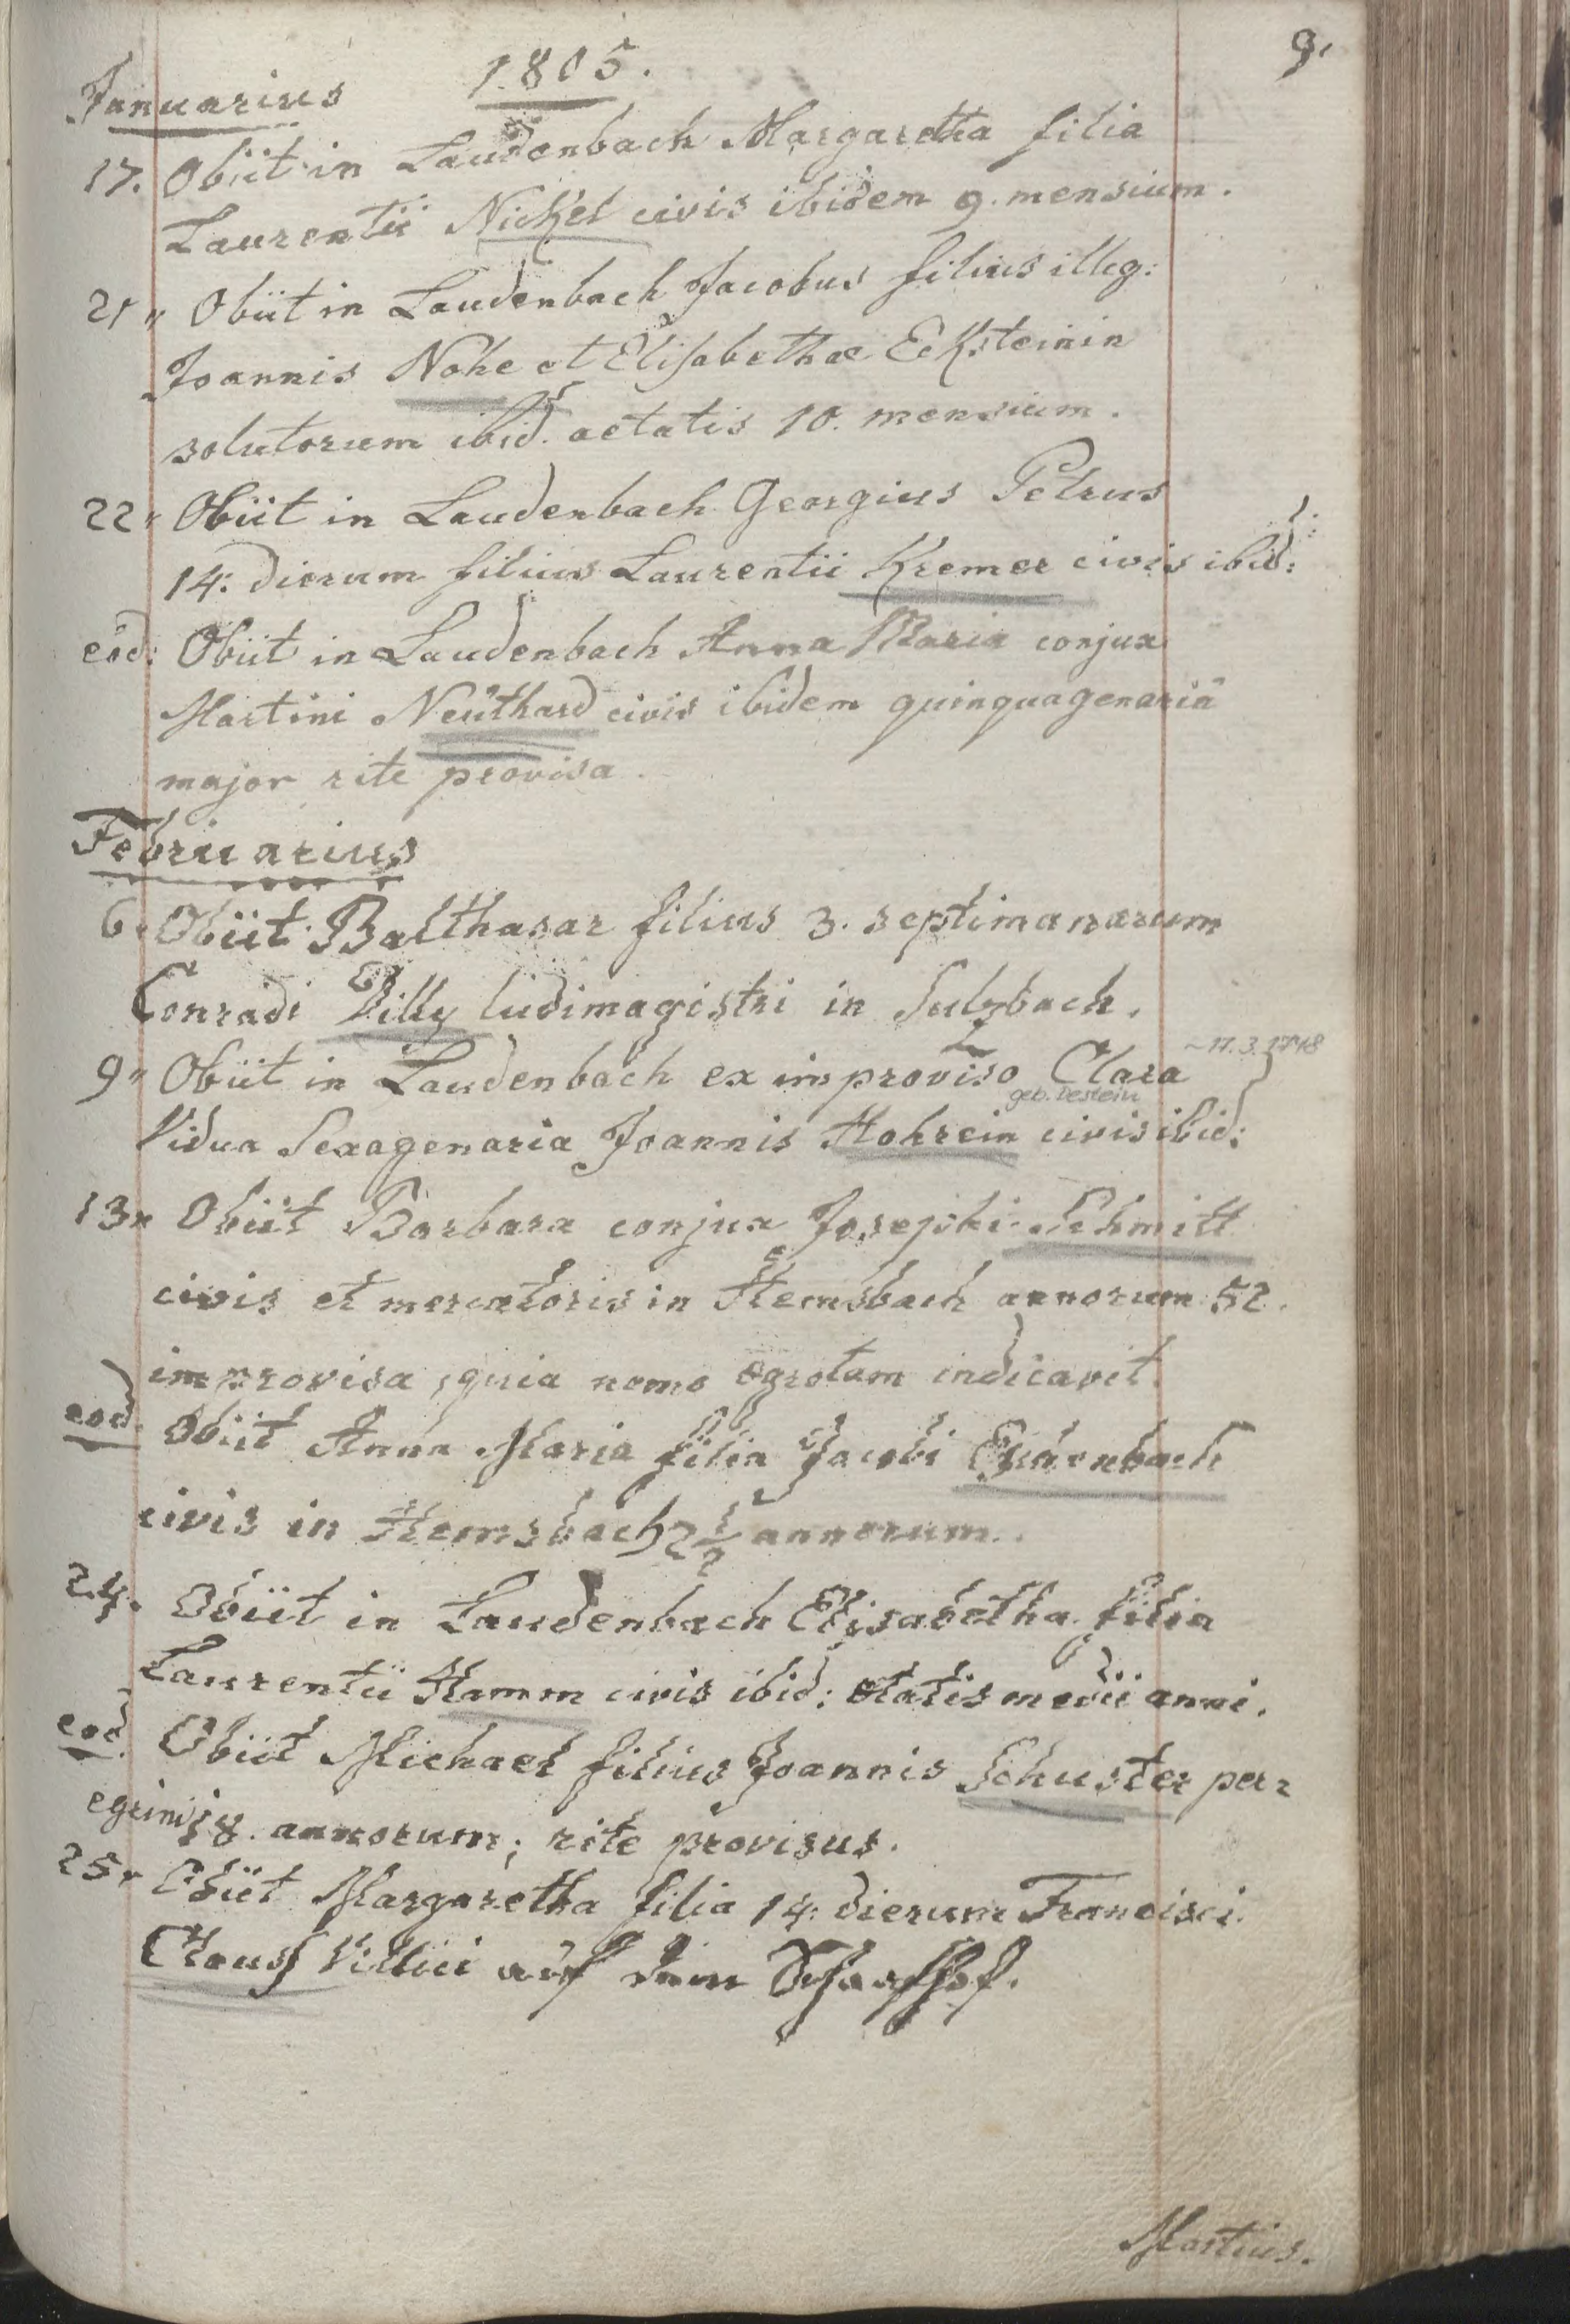 9.
1805.
Januarius
17. Obiit in Laudenbach Margaretha filia
Laurentii Nickel civis ibidem 9. mensium.
21 " Obiit in Laudenbach Jacobus filius illeg:
Joannis Nohe et Elisabethae Ecksteinin
solutorum ibid. aetatis 10. mensium.
22 " Obiit in Laudenbach Georgius Petrus
14: dierum filius Laurentii Kremer civis ibid:
eod: Obiit in Laudenbach Anna Maria conjux
Martini Neuthard civis ibidem quinquagenaria
major rite provisa.
Februarius
6. Obiit Balthasar filius 3. septimanarum
Conradi Zilly ludimagistri in Sulzbach.
~17.3.1748
9 " Obiit in Laudenbach ex improviso Clara
geb. Destein
Vidua Sexagenaria Joannis Hohrein civis ibid:
13 " Obiit Barbara conjux Josephi Schmitt
civis et mercatoris in Hemsbach annorum 52.
improvisa, quia nemo egrotam indicavit.
eod. Obiit Anna Maria filia Jacobi
civis in Hemsbach 2 1/2 annorum.
24. Obiit in Laudenbach Elisabetha filia
Laurentii Hamm civis ibid: etatis medii anni.
eod. Obiit Michael filius Joannis Schuster per=
egrini 18. annorum; rite provisus.
25 " Obiit Margaretha filia 14: dierum Francisci
Clauss Villici auf dem Schaafhof.
Martius.